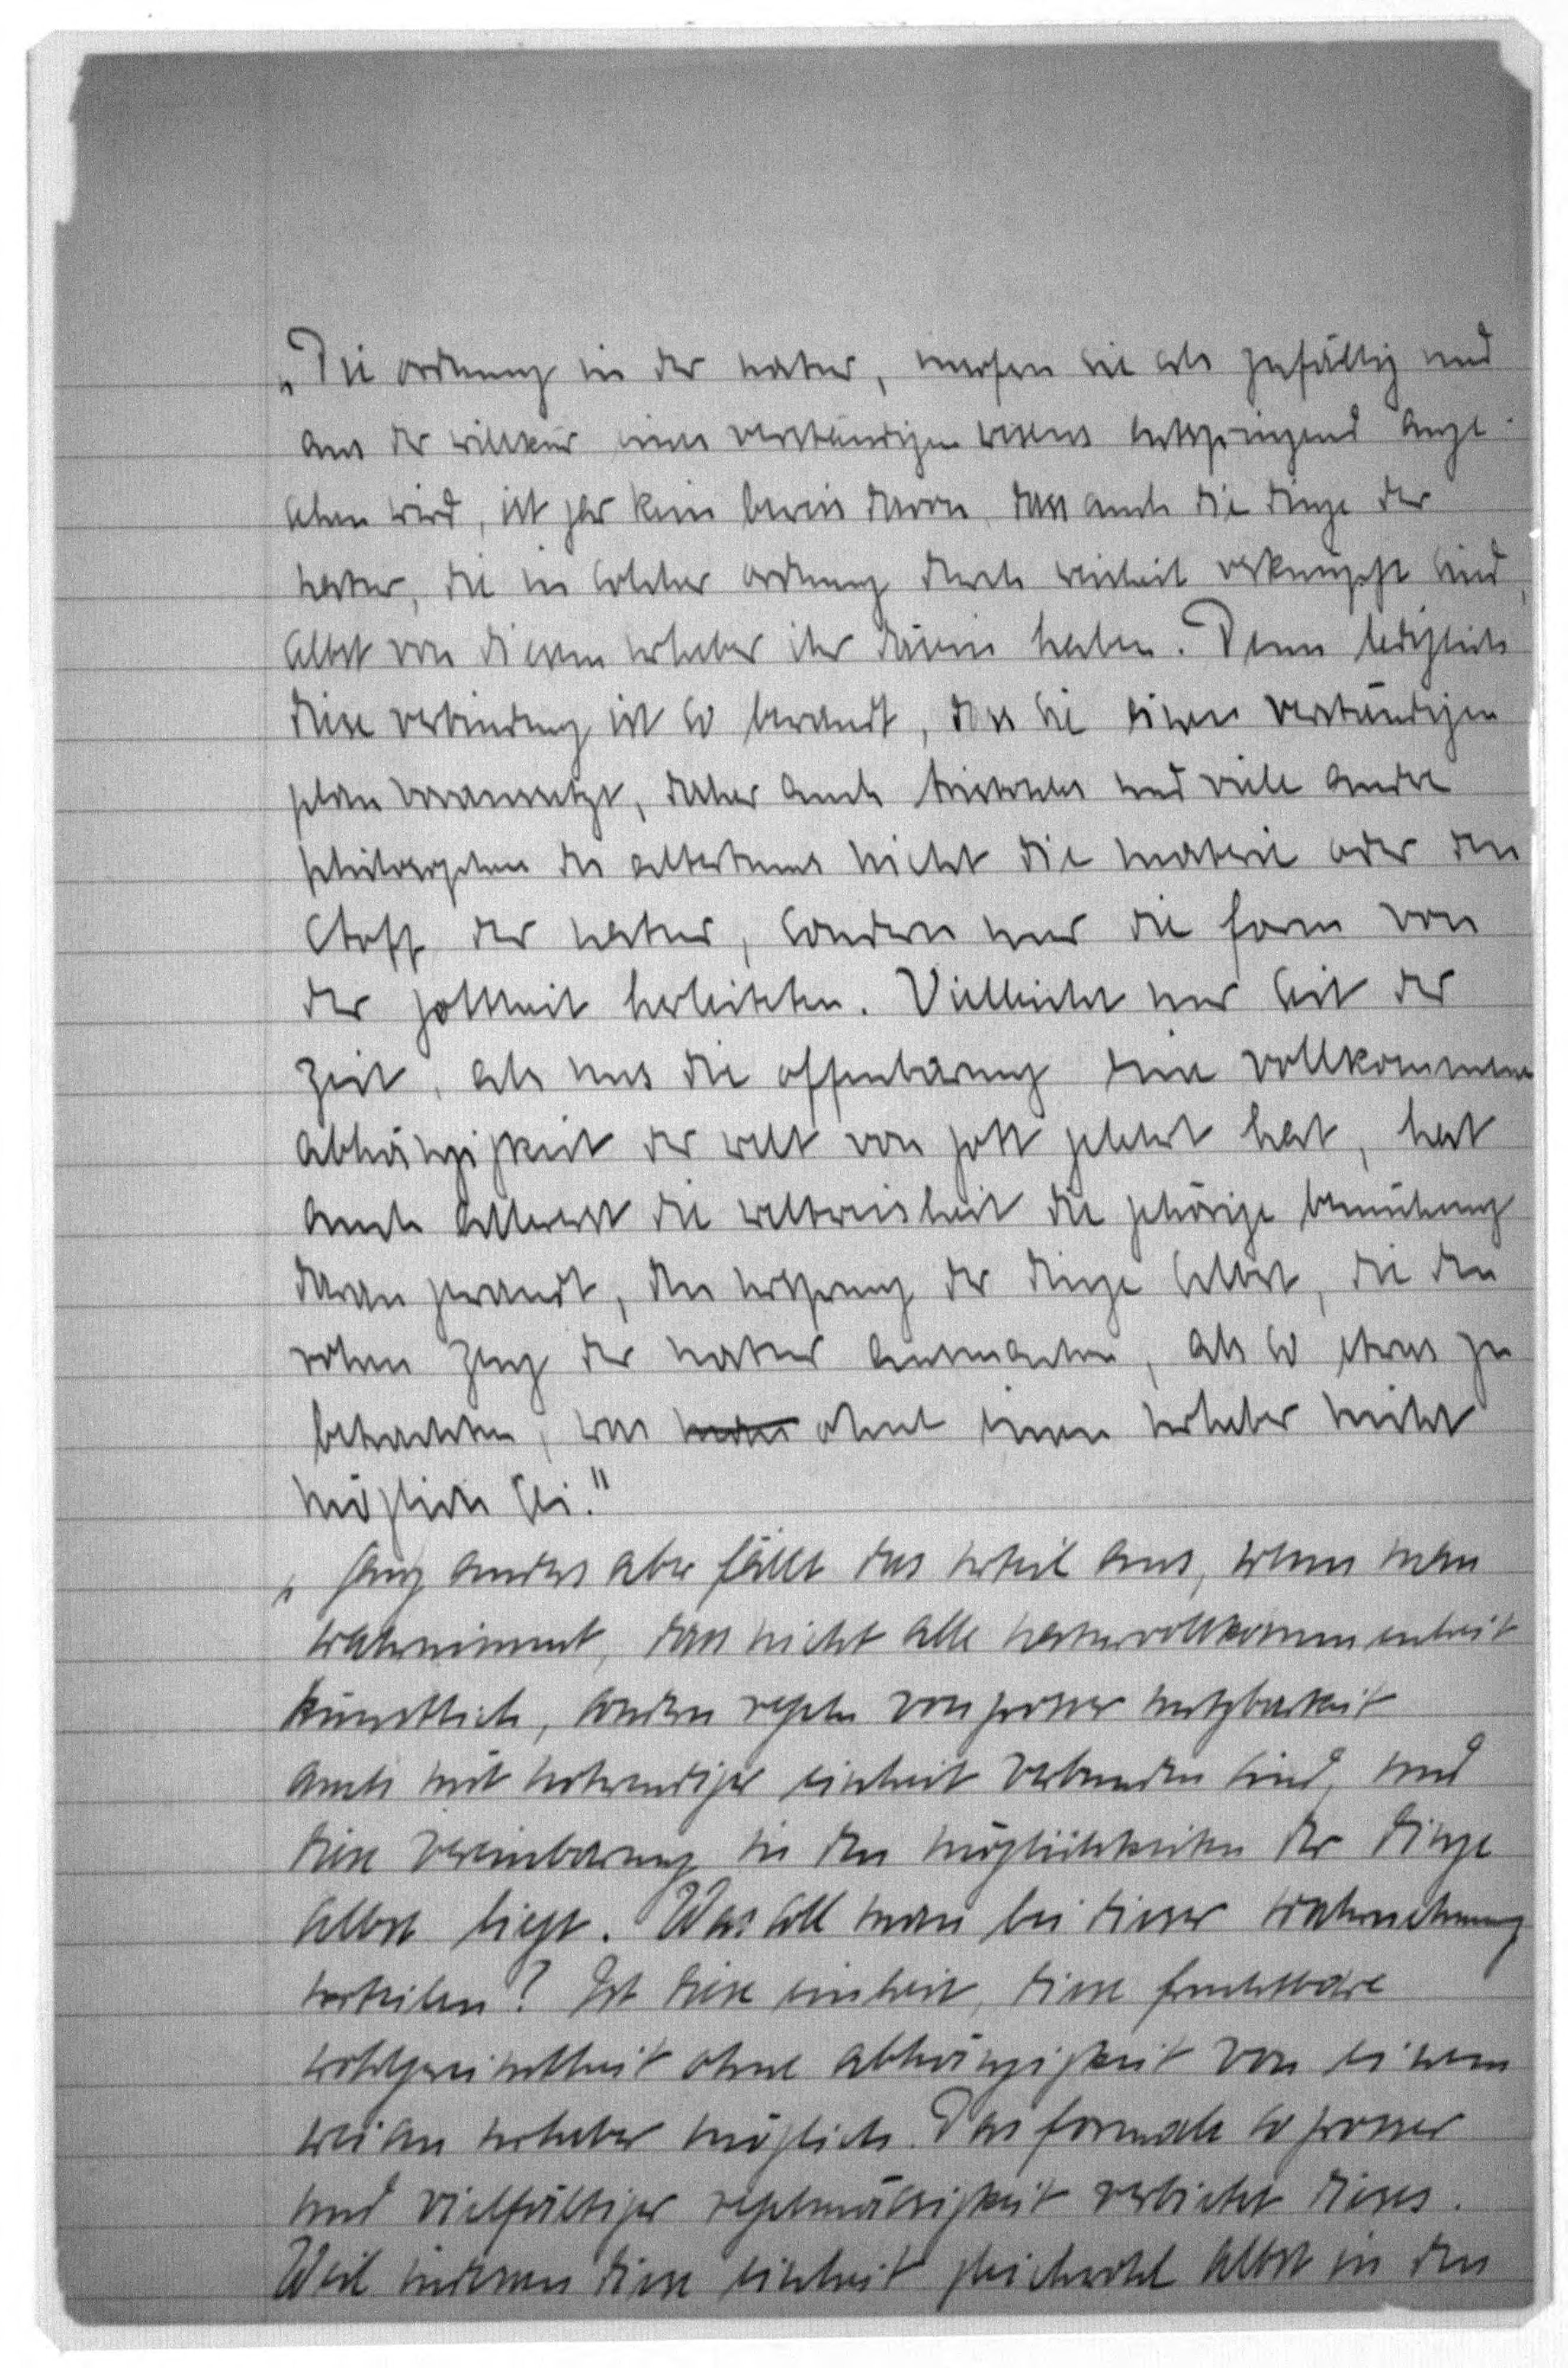 „Die ordnung in der natur, insofern sie als zufällig und
aus der willkür eines verständigen wesens entspringend ange-
sehen wird, ist gar kein beweis davon, dass auch die dinge der
natur, die in solcher ordnung durch weisheit verknüpft sind,
selbst von diesem urheber ihr dasein haben. Denn lediglich
diese verbindung ist so bewandt, dass sie einen verständigen
plan voraussetzt, daher auch Aristoteles und viele andre
philosophen des altertums nicht die materie oder den
stoff der natur, sondern nur die form von
der gottheit herleiteten. Vielleicht nur seit der
zeit, als uns die offenbarung eine vollkommene
abhängigkeit der welt von gott gelehrt hat, hat
auch allererst die weltweisheit die gehörige bemühung
daran gewandt, den ursprung der dinge selbst, die den
rohen zeug der natur ausmachen, als so etwas zu
betrachten, was ohne einen urheber nicht
möglich sei."
„ganz anders aber fällt das urteil aus, wenn man
wahrnimmt, dass nicht alle naturvollkommenheit
künstlich, sondern regeln von grosser nutzbarkeit
auch mit notwendiger einheit verbunden sind, und
diese vereinbarung in den möglichkeiten der dinge
selbst liegt. Was soll man bei dieser wahrnehmung
urteilen? Ist diese einheit, diese fruchtbare
wohlgereimtheit ohne abhängigkeit von einem
weisen urheber möglich. Das formale so grosser
und vielfältiger regelmässigkeit verbietet dieses.
Weil indessen diese einheit gleichwohl selbst in den